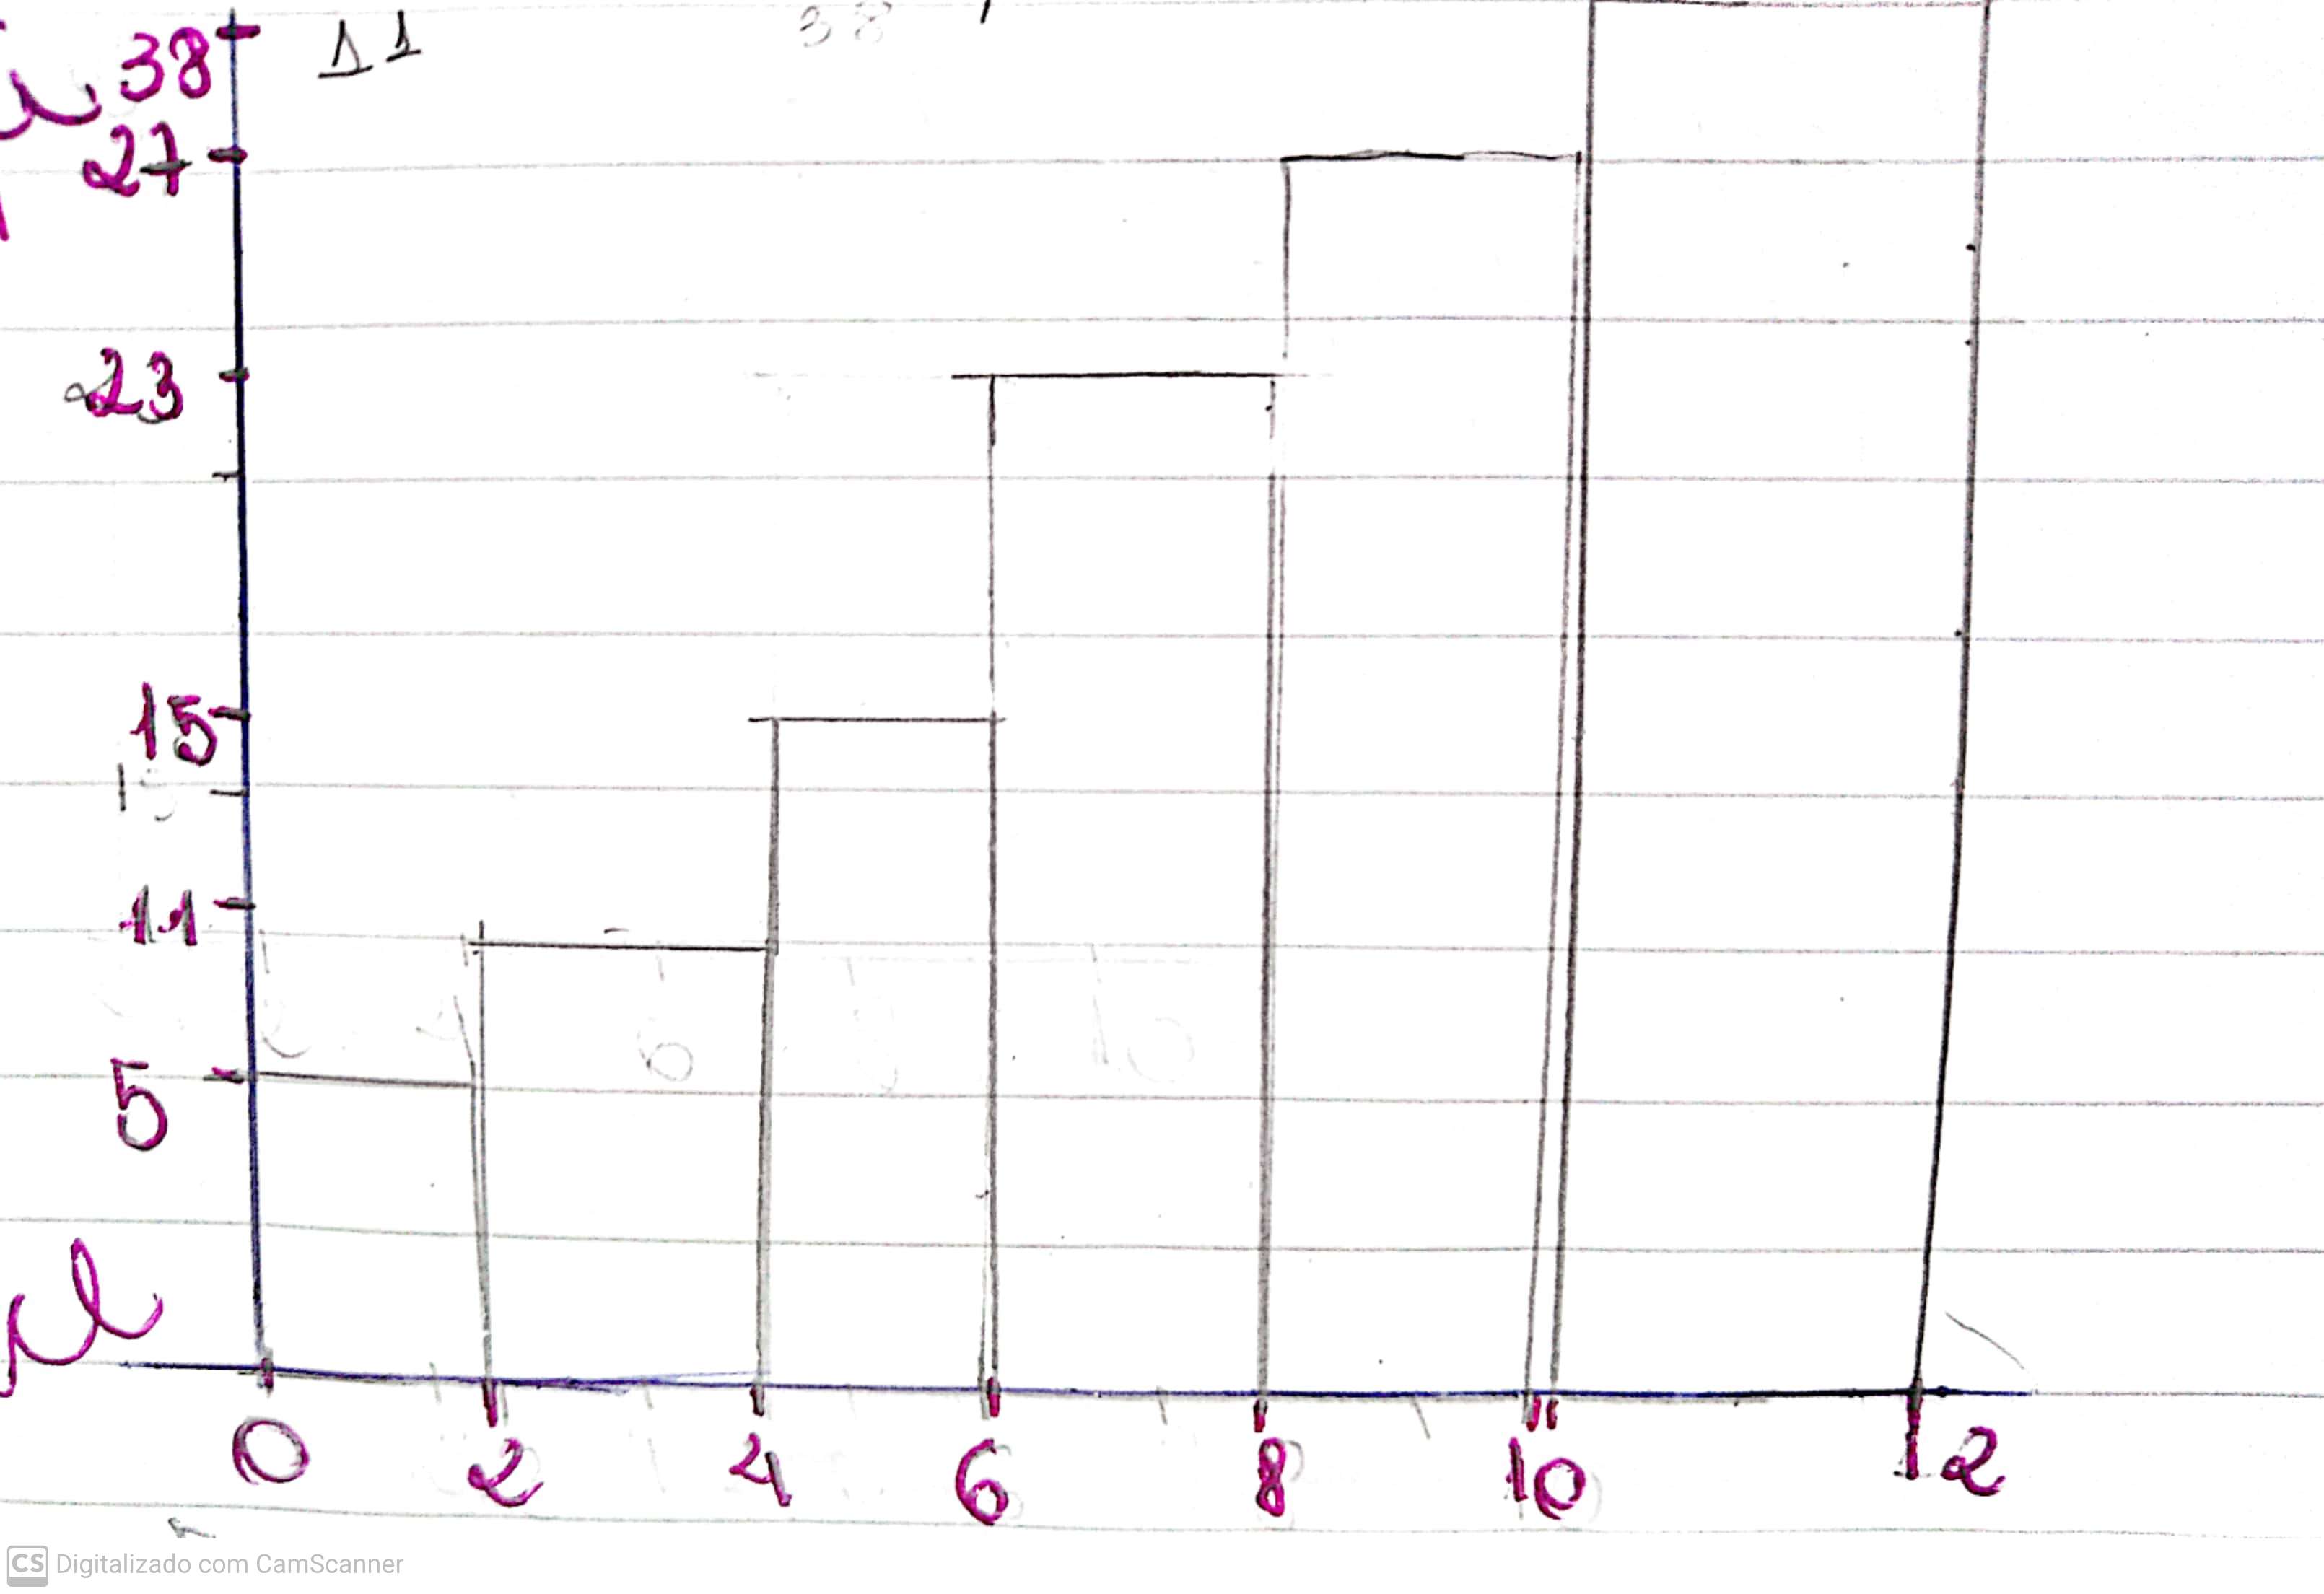 38 11 38
27
23
15
15
11
6 10
5
0 2 4 6 8 10 12
CS Digitalizado com CamScanner